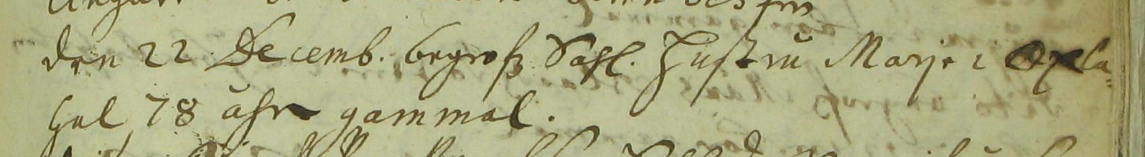 den 22 Decemb. begrofs Sahl. Hustru Marje i Oxla=
hal 78 åhr gammal.